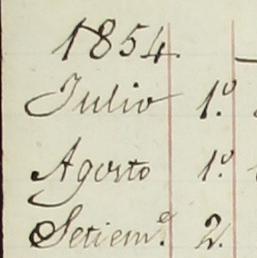 1854.
Julio 1.º
Agosto 1.º
Setiem.e 2.